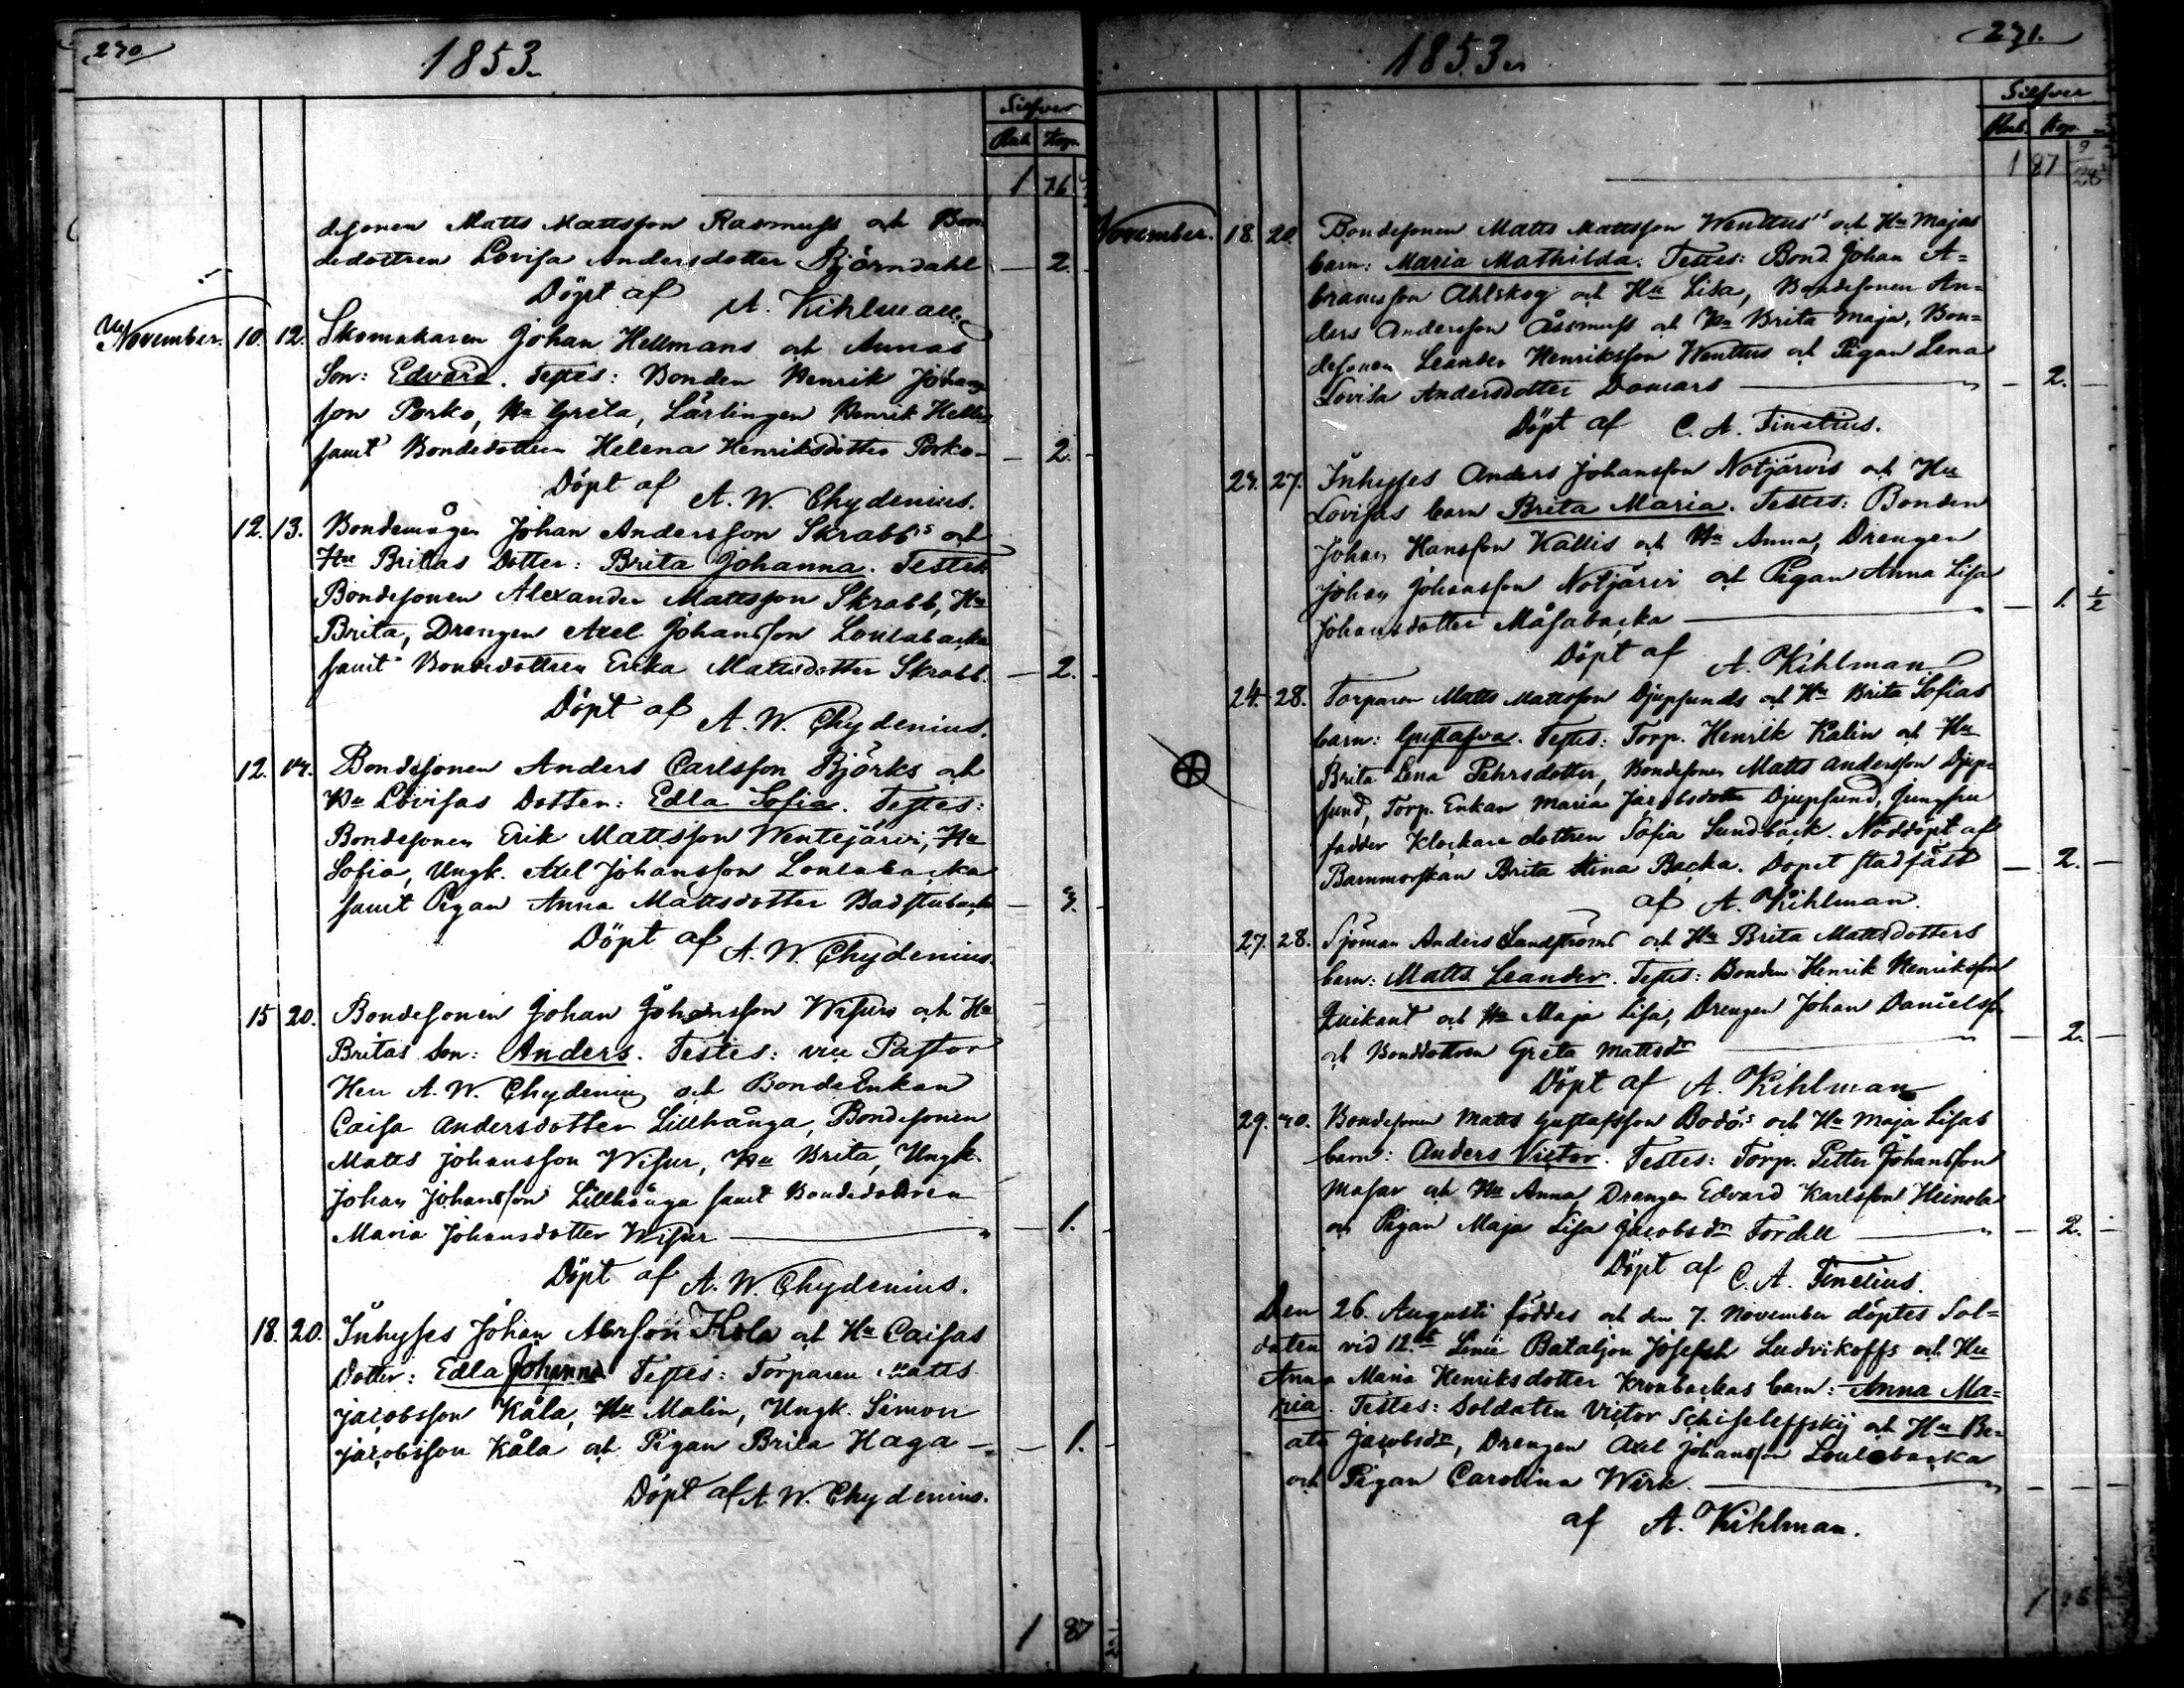 270.
1853.
Silfver
Rub. Kop.
1 76
desonen Matts Mattsson Rasmuss och Bon-
dedottren Lovisa Andersdotter Björndahl — 2. -
Döpt af A. Kihlman.
November. 10. 12. Skomakaren Johan Hellmans och Annas
Son: Edvard. Testes: Bonden Henrik Johans
son Porko, Hu Greta, Lärlingen Henrik Hell
samt Bondedottren Helena Henriksdotter Porko — 2. -
Döpt af A. W. Chydenius.
12. 13. Bondemågen Johan Andersson Skrabb's och
Hu Brittas Dotter: Brita Johanna. Testes
Bondesonen Alexander Mattsson Skrabb, Hu
Brita, Drengen Axel Johansson Loulabacka
samt Bondedottren Erika Mattsdotter Skrabb. — 2. -
Döpt af A. W. Chydenius.
12. Bondesonen Anders Carlsson Björks och
Hu Lovisas Dotter: Edla Sofia. Testes:
Bondesonen Erik Mattsson Wentejärvi, Hu
Sofia, Ungk. Axel Johansson Loulabacka
samt Pigan Anna Mattsdotter Badstubacka
Döpt af A. W. Chydenius.
15 20. Bondesonen Johan Johansson Wisurs och Hu
Britas Son: Anders. Testes: vice Pastor
Herr A. W. Chydenius och BondeEnkan
Caisa Andersdotter Lillhånga, Bondesonen
Matts Johansson Wisur, Hu Brita, Ungk.
Johan Johansson Lillhånga samt Bondedottren
Maria Johansdotter Wisur — 1. -
Döpt af A. W. Chydenius.
18. 20. Inhyses Johan Abrsson Hola och Hu Caisas
Dotter: Edla Johanna Testes: Torparen Matts
Jacobsson Kåla, Hu Malin, Ungk. Simon
Jacobsson Kåla och Pigan Brita Haga — 1. -
Döpt af A. W. Chydenius.
1 87
271.
1853.
Silfver
Rub. Kop.
1 87
November. 18. 20. Bondesonen Matts Mattsson Wenttus's och Hu Majas
barn: Maria Mathilda. Testes: Bond. Johan A=
bramsson Ahlskog och Hu Lisa, Bondesonen An=
ders Andersson Åssmuss och Hu Brita Maja, Bon=
desonen Leander Henriksson Wenttus och Pigan Lena
Lovisa Andersdotter Domars — 2. —
Döpt af C. A. Finelius.
27. Inhyses Anders Johansson Notjärvis och Hu
Lovisas barn Brita Maria. Testes: Bonden
Johan Hansson Kallis och Hu Anna, Drengen
Johan Johansson Notjärvi och Pigan Anna Lisa
Johansdotter Måsabacka — 1. 1/2
Döpt af A. Kihlman
24. 28. Torparen Matts Mattsson Djupsunds och Hu Brita Sofias
barn: Gustafva. Testes: Torp. Henrik Kalin och Hu
Brita Lena Pehrsdotter, Bondesonen Matts Andersson Djup=
sund, Torp. Enkan Maria Jacobsdotter Djupsund, Jungfru
fadder Klockare dottren Sofia Sundbäck. Nöddöpt af
Barnmorskan Brita Stina Backa. Dopet stadfäst — 2. —
af A. Kihlman.
27. 28. Sjöman Anders Sandströms och Hu Brita Mattsdotters
barn: Matts Leander. Testes: Bonden Henrik Henriksson
Quikant och Hu Maja Lisa, Drengen Johan Danielss.
och Bonddottren Greta Mattsdr — 2. —
Döpt af A. Kihlman
29. Bondesonen Matts Gustafsson Bodö's och Hu Maja Lisas
barn: Anders Victor. Testes: Torp. Petter Johansson
Masar och Hu Anna, Drengen Edvard Karlsson Heinola
och Pigan Maja Lisa Jacobsdr Fordell — 2. —
Döpt af C. A. Finelius.
Den 26. Augusti föddes och den 7. November döptes Sol=
daten vid 12.te Linie Bataljon Josefeh Ludvikoffs och Hu
Anna Maria Henriksdotter Kronbackas barn: Anna Ma=
ria. Testes: Soldaten Victor Schiseleffskij och Hu Be=
ata Jacobsdr, Drengen Axel Johansson Loulabacka
och Pigan Carolina Wirk. — — —
af A. Kihlman.
1